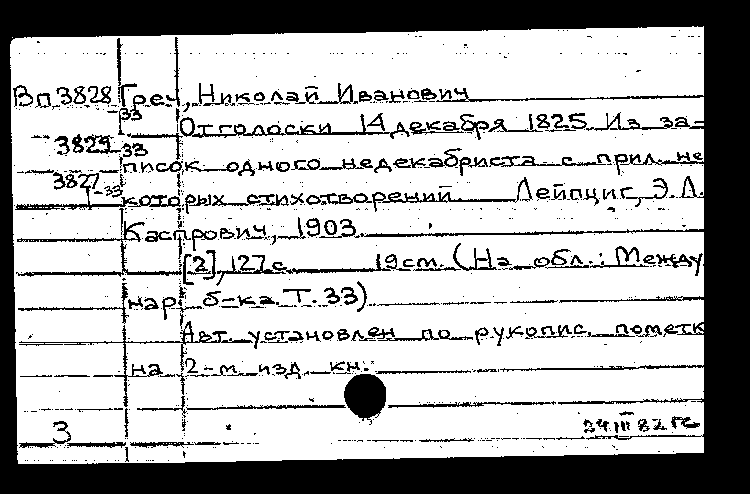 Вп 3828 Греч, Николай Иванович
33
Отголоски 14 декабря 1825 Из за-
3829 33
писок одного недекабриста с прил. не
3827 1-33
которых стихотворений. Лейпциг, Э.Л.
Каспрович, 1903.
[2], 127 с. 19 см. (На обл.: Между
нар. б-ка. Т. 33)
Авт. установлен по рукопис. пометк
на 2-м изд. кн.
3
24 III 82